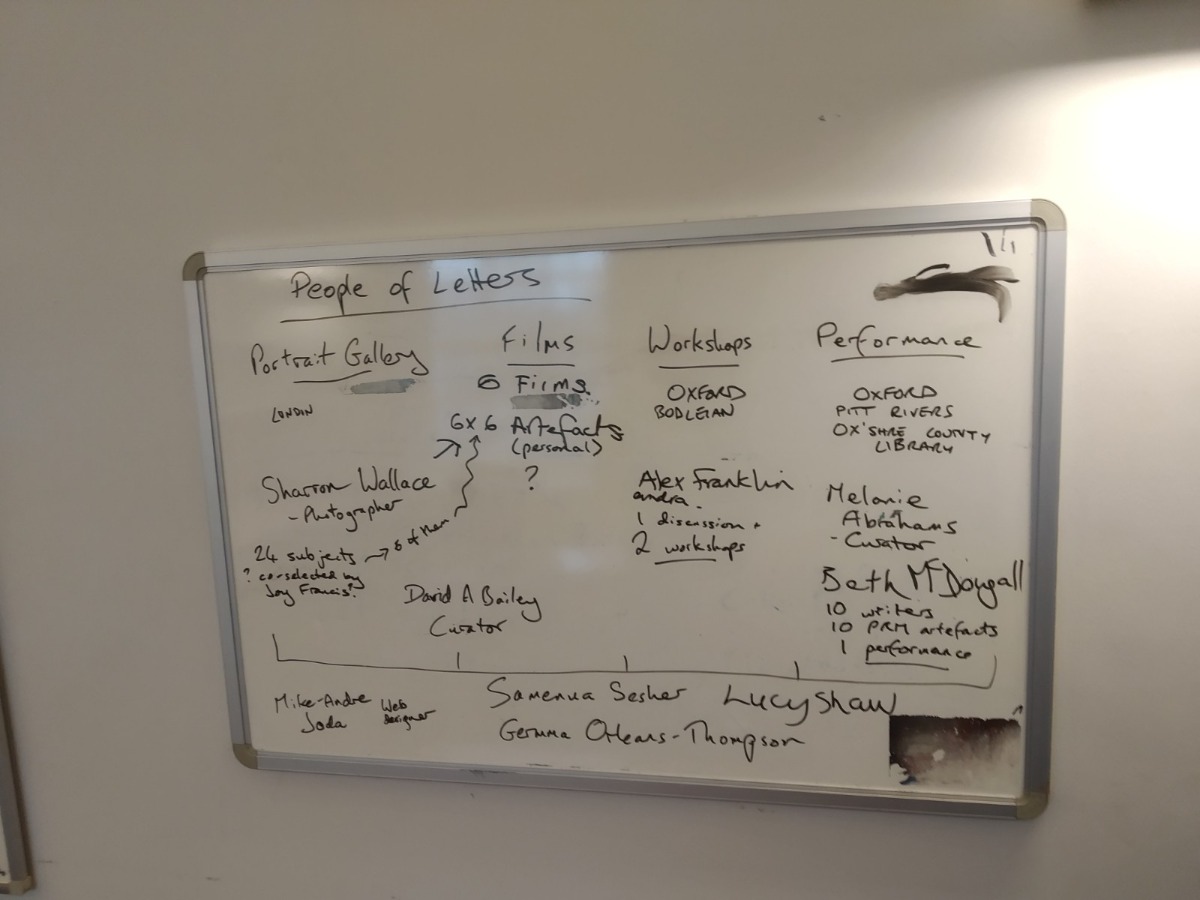 People of Letters
Portrait Gallery
LONDON
Sharron Wallace
- Photographer
24 subjects → 6 of them
? co-selected by
Joy Francis?
Films
6 Films
6x6 Artefacts
(personal)
?
David A Bailey
Curator
Workshops
OXFORD
BODLEIAN
Alex Franklin
andra
1 discussion +
2 workshops
Performance
OXFORD
PITT RIVERS
OX'SHRE COUNTY
LIBRARY
Melanie
Abrahams
- Curator
Beth McDougall
10 writers
10 PRM artefacts
1 performance
Mike-Andre
Joda
Web
designer
Samenua Sesher
Lucy Shaw
Gemma Orleans-Thompson